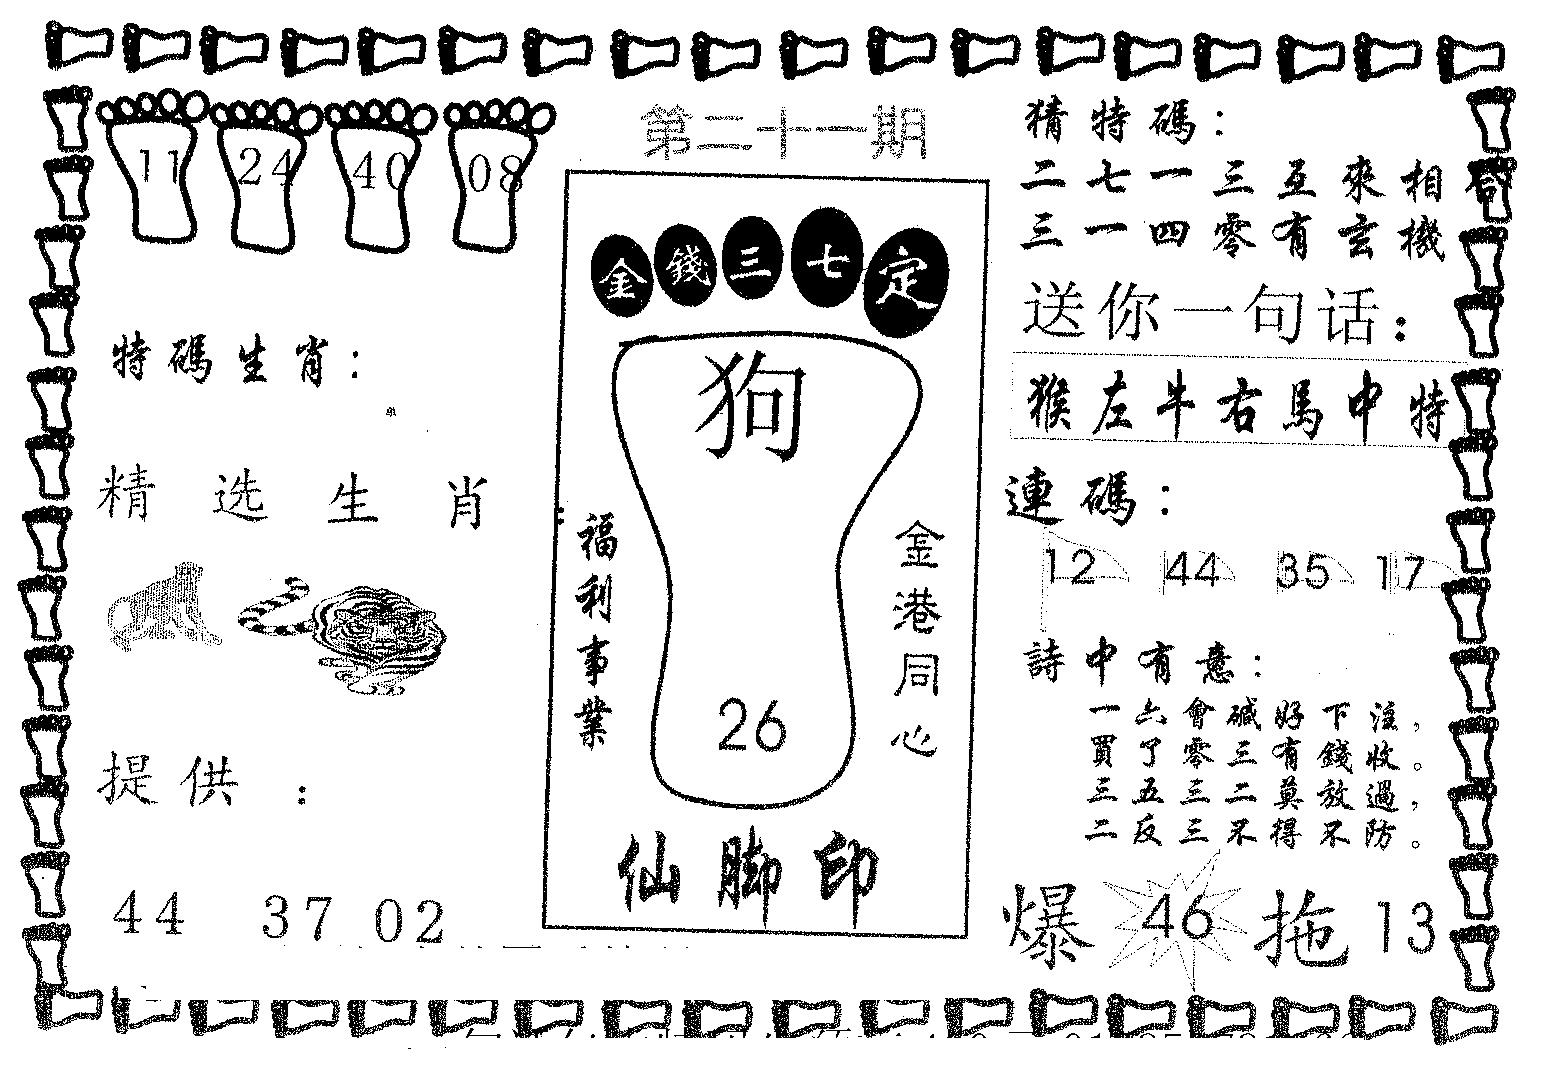 第二十一期
11 24 40 08
特碼生肖：
单
精选生肖：
提供：
44 37 02
金錢三七定
狗
福利事業
金港同心
26
仙脚印
猜特碼：
二七一三互來相
三一四零有玄機
送你一句话：
猴左牛右馬中特
連碼：
12 44 35 17
詩中有意：
一六會碱好下注，
買了零三有錢收。
三五三二莫放過，
二反三不得不防。
爆 46 拖 13